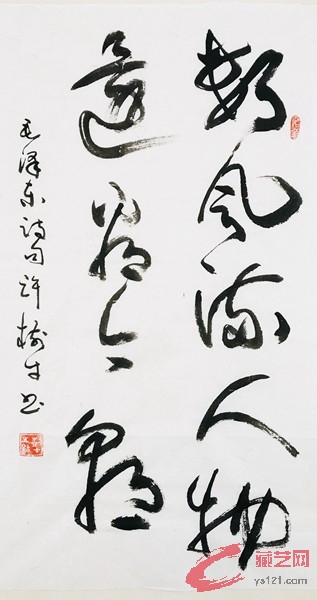 數风流人物
還看今朝
毛澤东诗句许
书
藏艺网
ys121.com